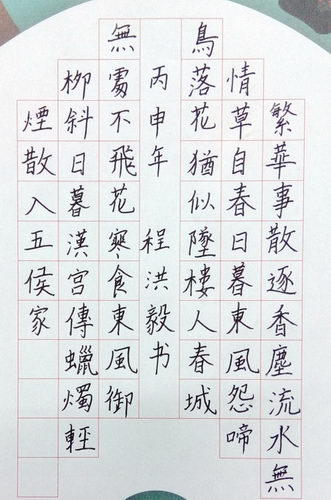 繁華事散逐香塵流水無
情草自春日暮東風怨啼
鳥落花猶似墜樓人春城
丙申年 程洪毅书
無處不飛花寒食東風御
柳斜日暮漢宮傳蠟燭輕
煙散入五侯家